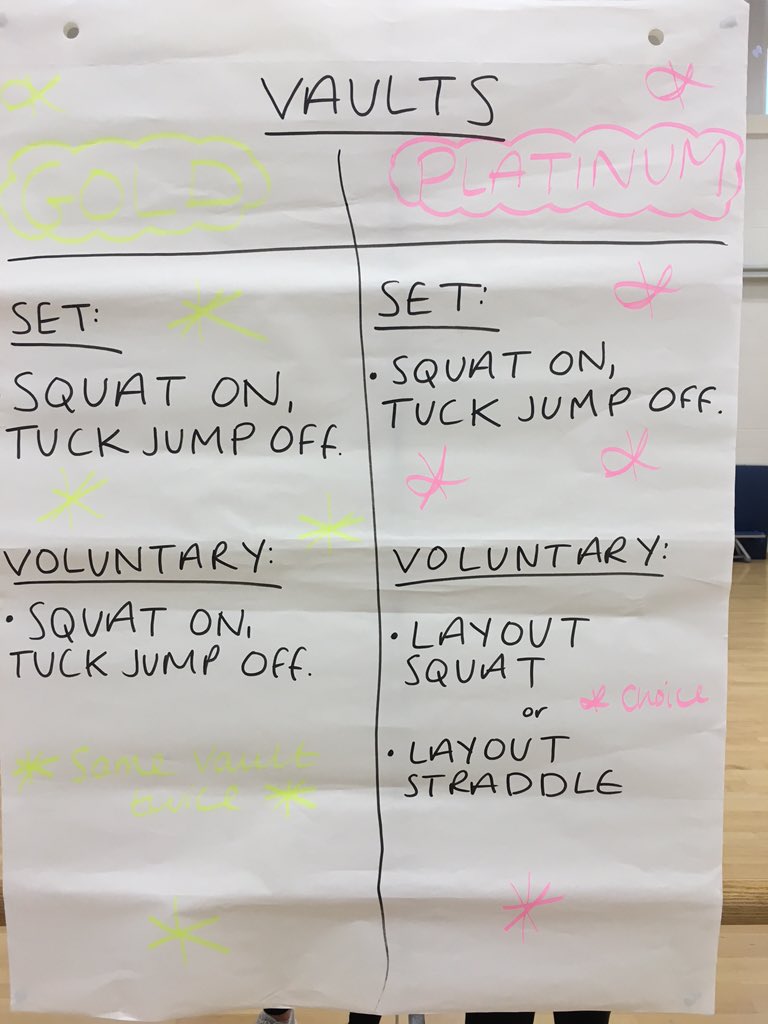 VAULTS
GOLD
SET:
SQUAT ON,
TUCK JUMP OFF.
VOLUNTARY:
• SQUAT ON,
TUCK JUMP OFF.
* Same vault
twice *
PLATINUM
SET:
• SQUAT ON,
TUCK JUMP OFF.
VOLUNTARY:
• LAYOUT
SQUAT
or
* Choice
• LAYOUT
STRADDLE